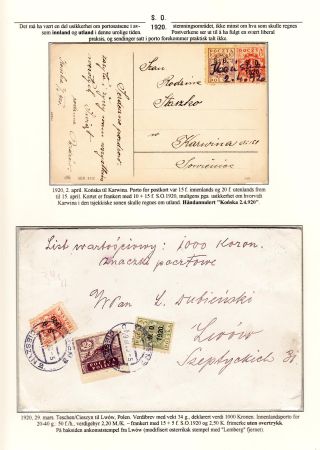 S. O.
1920.
Det må ha vært en del usikkerhet om portosatsene i av-
sem innland og utland i denne urolige tiden.
stemningsområdet, ikke minst om hva som skulle regnes
Postverkene ser ut til å ha fulgt en svært liberal
praksis, og sendinger satt i porto forekommer praktisk talt ikke.
Sz. Pan
Rodzina
Staszko
Karwina
Sowieniec
1920, 2. april. Końska til Karwina. Porto for postkort var 15 f. innenlands og 20 f. utenlands frem
til 15. april. Kortet er frankert med 10 + 15 f. S.O.1920, muligens pga. usikkerhet om hvorvidt
Karwina i den tsjekkiske sonen skulle regnes om utland. Håndannulert "Końska 2.4.920"
List wartościowy: 1000 Koron.
Znaczki pocztowe
WPan L. Dubieński
Lwów
Szeptyckich
1920, 29. mars. Teschen/Cieszyn til Lwów, Polen. Verdibrev med vekt 34 g., deklarert verdi 1000 Kronen. Innenlandsporto for
20-40 g: 50 f., verdigebyr 2,20 M/K. – frankert med 15 + 5 f. S.O.1920 og 2,50 K. frimerke uten overtrykk.
På baksiden ankomststempel fra Lwów (modifisert østerriksk stempel med "Lemberg" fjernet).